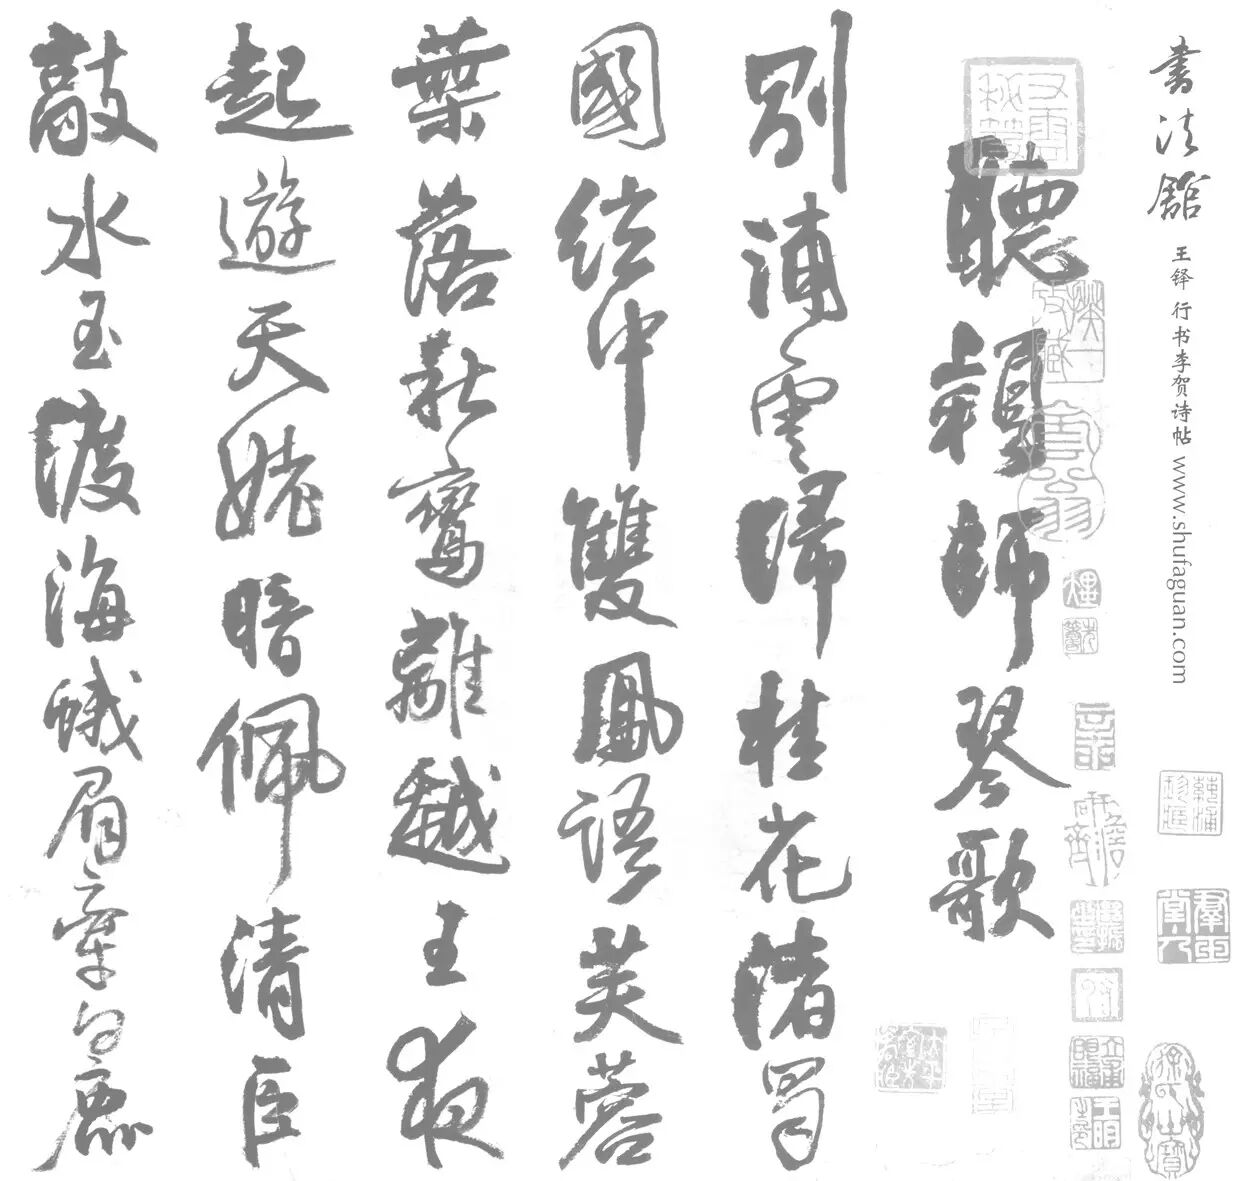 書法舘 王铎 行书李贺诗帖 www.shufaguan.com
聽穎師琴歌
別浦雲歸桂花渚蜀
國絃中雙鳳語芙蓉
葉落秋鸞離越王夜
起遊天姥暗佩清臣
敲水玉渡海蛾眉牽白鹿